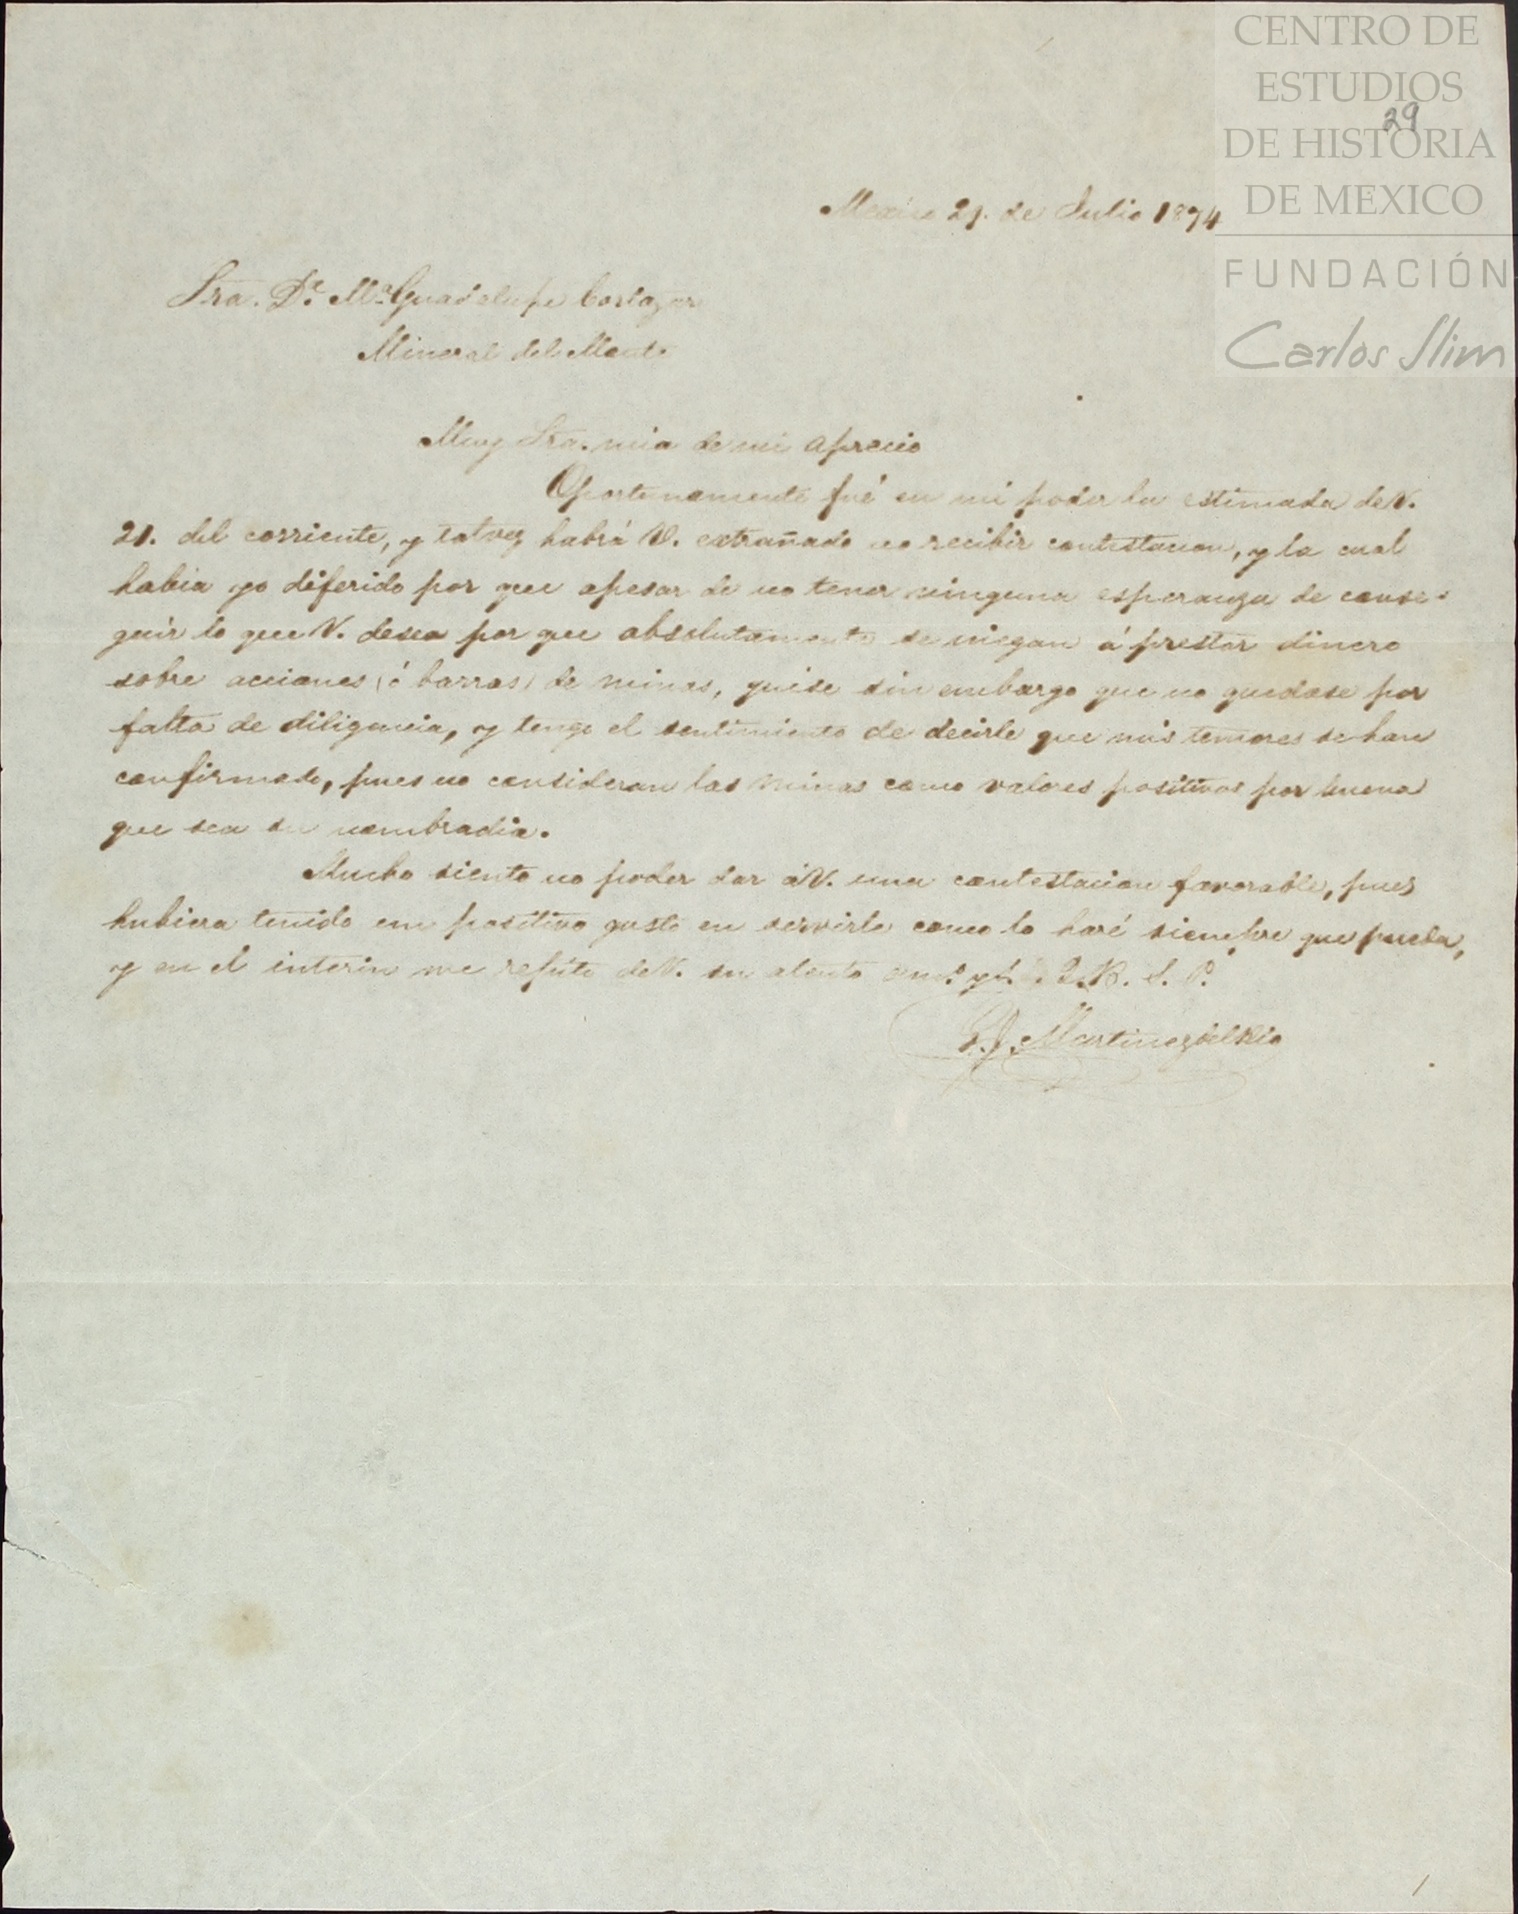 CENTRO DE
ESTUDIOS
DE HISTORIA
DE MEXICO
FUNDACIÓN
Carlos Slim
29
Mexico 29. de Julio 1874
Sra. Da. Ma. Guadalupe Cortazar
Mineral del Monte
Muy Sra. mia de mi aprecio
Oportunamente fué en mi poder la estimada de V.
21. del corriente, y talvez habrá V. extrañado no recibir contestacion, y la cual
habia yo diferido por que apesar de no tener ninguna esperanza de conse-
guir lo que V. desea por que absolutamente se niegan á prestar dinero
sobre acciones (ó barras) de minas, quise sin embargo que no quedase por
falta de diligencia, y tengo el sentimiento de decirle que mis temores se han
confirmado, pues no consideran las minas como valores positivos por buena
que sea su nombradia.
Mucho siento no poder dar á V. una contestacion favorable, pues
hubiera tenido un positivo gusto en servirla como lo haré siempre que pueda,
y en el interin me repito de V. su atento amo. y S. Q. B. S. P.
Martinez del Rio